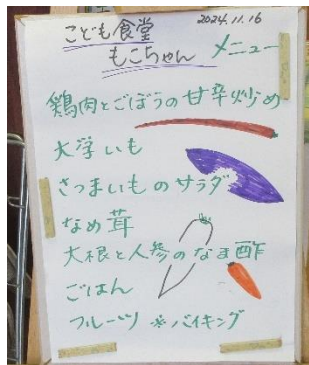 こども食堂 2024.11.16
もこちゃん メニュー
鶏肉とごぼうの甘辛炒め
大学いも
さつまいものサラダ
なめ茸
大根と人参のなま酢
ごはん
フルーツ ※バイキング